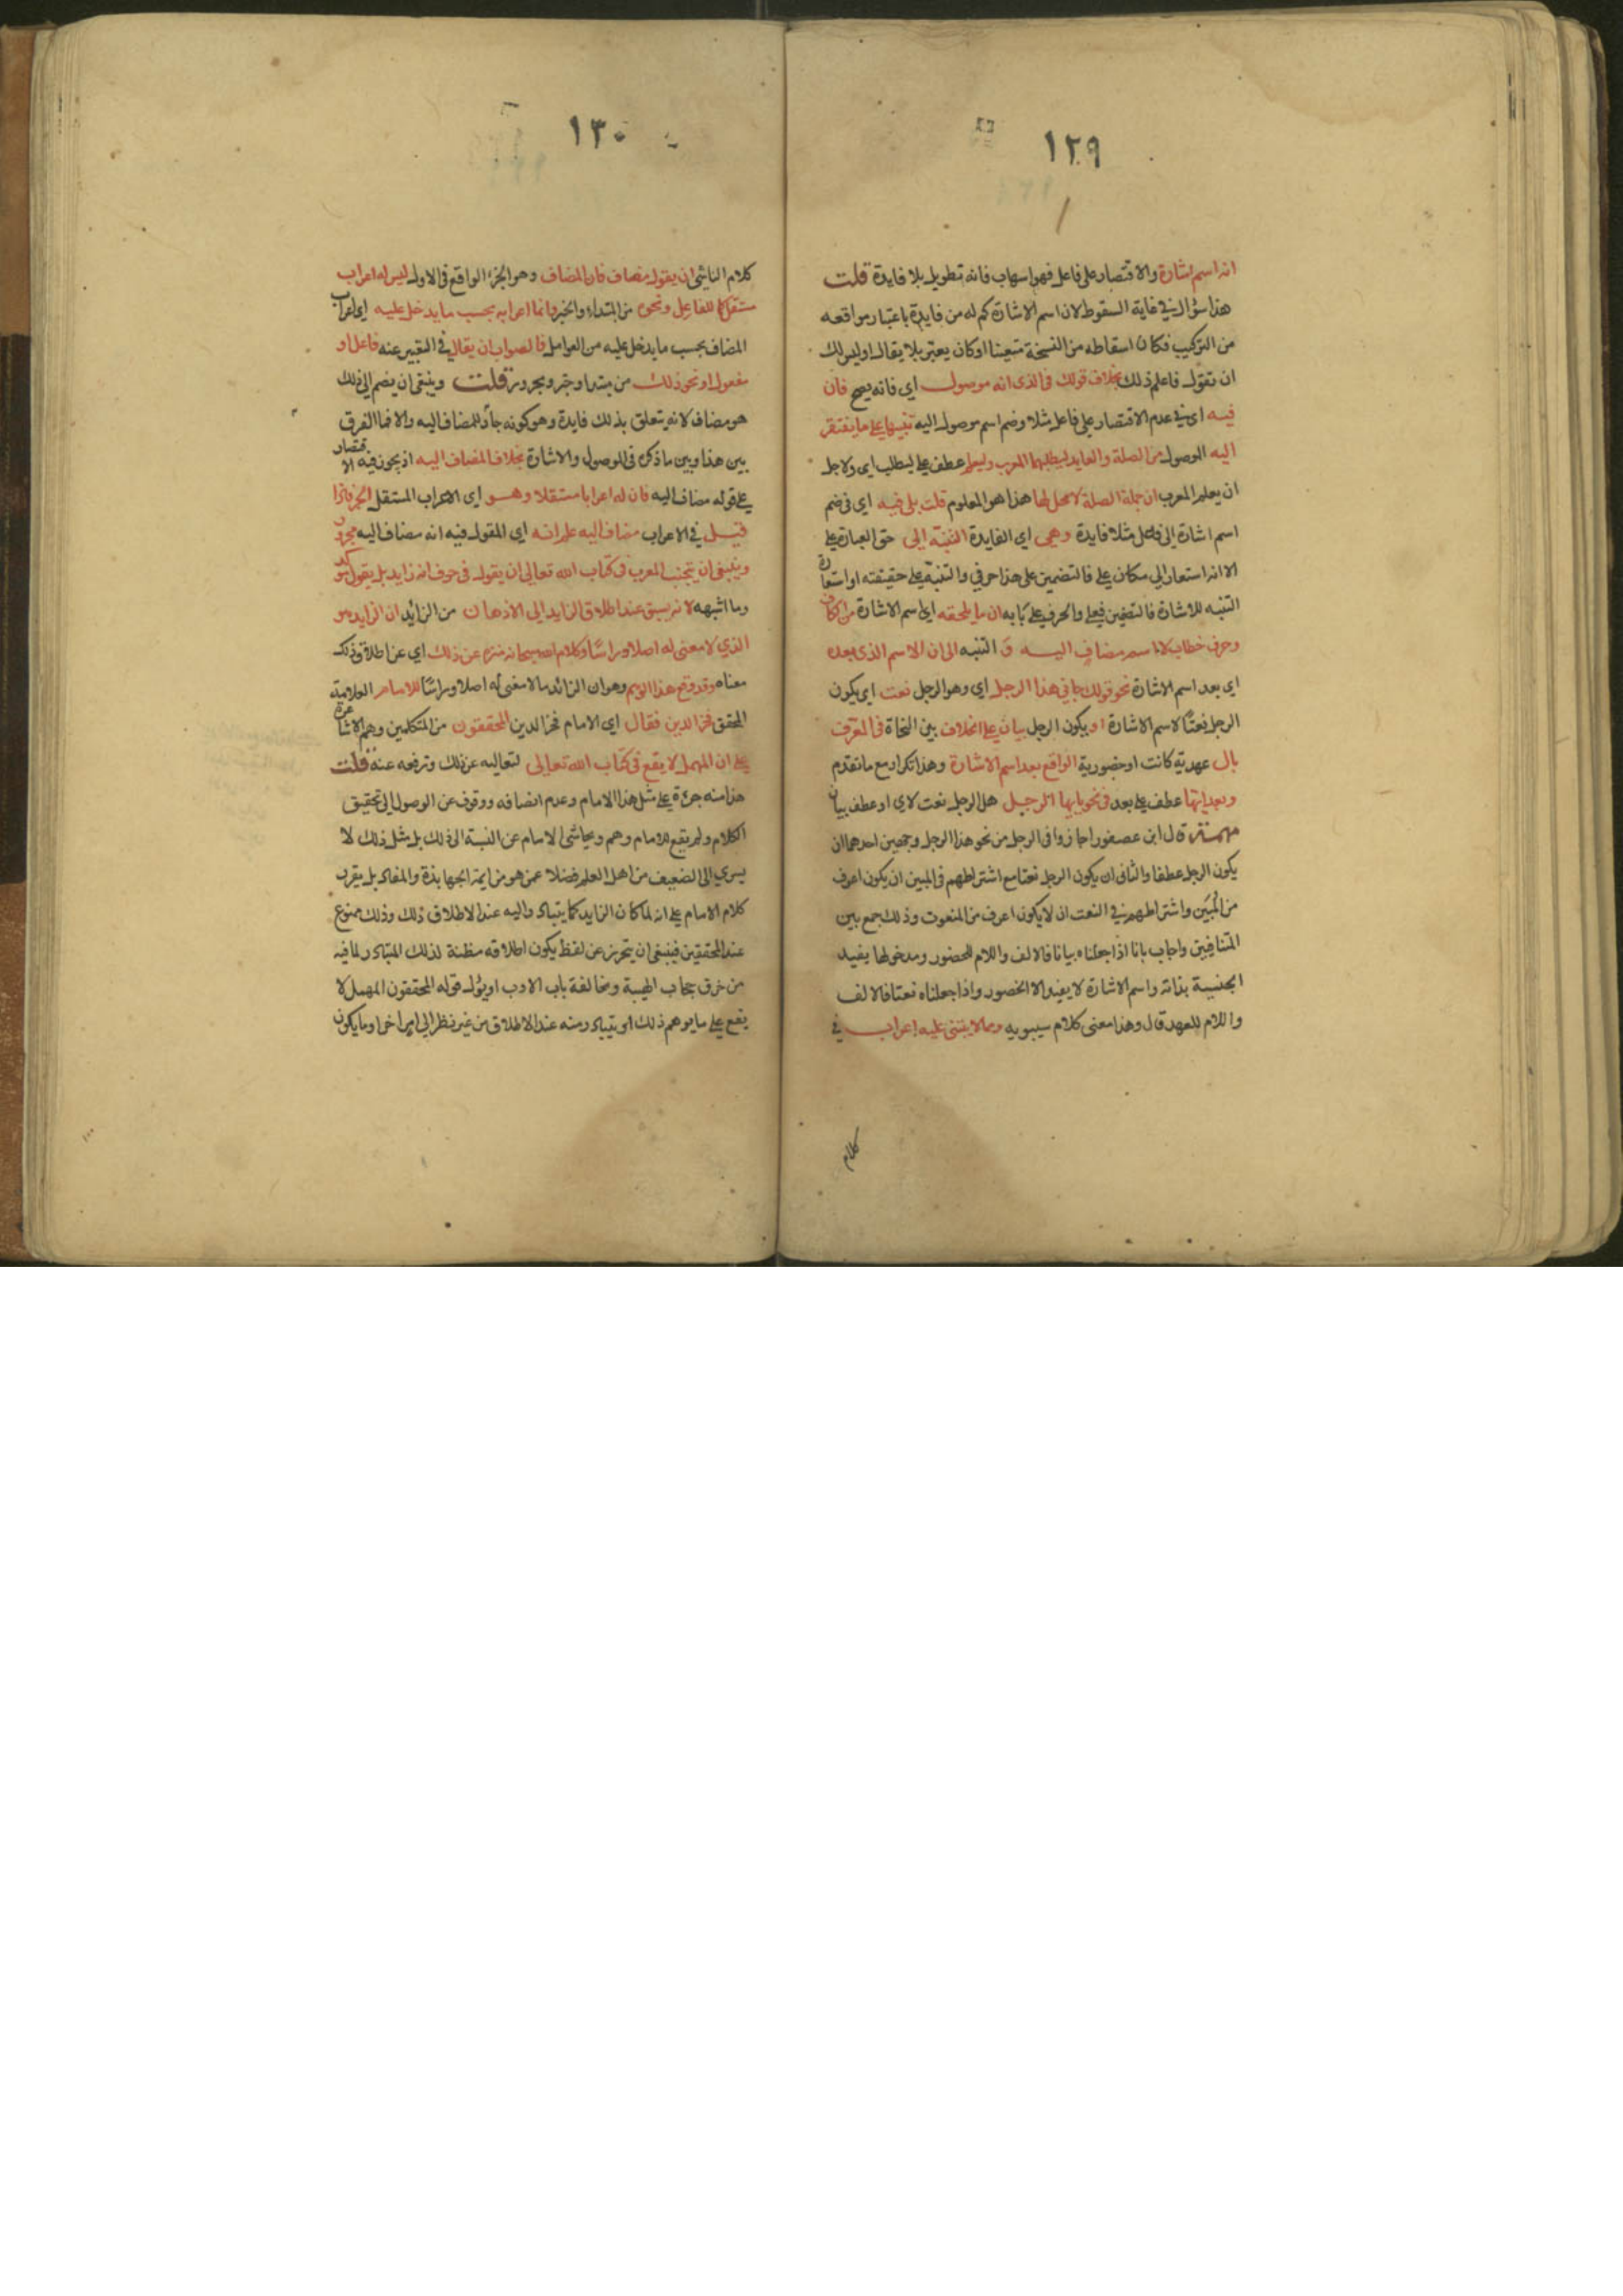 ١٢٩
انه اسم اشارة والاقتصار على فاعل فهو اسهاب فانه تطويل بلا فايدة قلت
هذا سؤال في غاية السقوط لان اسم الاشارة كم له من فايدة باعتبار مواقعه
من التركيب فكان اسقاطه من النسخة متعينا او كان يعتبر بلا يقال اوليس لك
ان تقول فاعلم ذلك بخلاف قولك في الذى انه موصول اي فانه يصح فان
فيه اي في عدم الاقتصار على فاعل مثلا وضم اسم موصول اليه تنبيها على ما يفتقر
اليه الموصول من الصلة والعايد ليطلبهما المعرب وليعلم عطف على ليطلب اي ولاجل
ان يعلم المعرب ان جملة الصلة لا محل لها هذا هو المعلوم قلت بلى فيه اي في ضم
اسم اشارة الى فاعل مثلا فايدة وهي اي الفايدة التنبيه الى حق العبارة على
الا انه استعار الى مكان على فالتضمين على هذا حرفي والتنبيه على حقيقته او استعارة
التنبه للاشارة فالتضمين فعلي والحرف على بابه ان ما يلحقه اي اسم الاشارة من الكاف
حرف خطاب لا اسم مضاف اليه و التنبه الى ان الاسم الذى بعده
اي بعد اسم الاشارة نحو قولك جاني هذا الرجل اي وهو الرجل نعت اي يكون
الرجل نعتا لاسم الاشارة او يكون الرجل بيان على الخلاف بين النحاة في المعرف
بال عهدية كانت او حضورية الواقع بعد اسم الاشارة وهذا تكرار مع ما تقدم
وبعد ايها عطف على بعد في نحو يا ايها الرجل هل الرجل نعت لاي او عطف بيان
قال ابن عصفور اجازوا في الرجل من نحو هذا الرجل وجهين احدهما ان
يكون الرجل عطفا والثاني ان يكون الرجل نعتا مع اشتراطهم في المبين ان يكون اعرف
من المبين واشتراطهم في النعت ان لا يكون اعرف من المنعوت وذلك جمع بين
المتنافيين واجاب بانا اذا جعلناه بيانا فالالف واللام للحضور ومدخولها يفيد
الجنسية بذاته واسم الاشارة لا يفيد الا الحضور واذا جعلناه نعتا فالالف
واللام للعهد قال وهذا معنى كلام سيبويه ومما لا يبتنى عليه اعراب في
كلام
١٣٠
كلام الناشي ان يقول مضاف فان المضاف وهو الجزء الواقع في الاول ليس له اعراب
مستقر كما للفاعل ونحوه من المبتداء والخبر وانما اعرابه بحسب ما يدخل عليه اي اعراب
المضاف بحسب ما يدخل عليه من العوامل فالصواب ان يقال في التعبير عنه فاعل او
مفعول او نحو ذلك من مبتدا وخبر ومجرور قلت وينبغي ان يضم الى ذلك
هو مضاف لانه يتعلق بذلك فايدة وهو كونه جارا للمضاف اليه والا فما الفرق
بين هذا وبين ما ذكره في الموصول والاشارة بخلاف المضاف اليه اذ يجوز فيه الاقتصار
على قوله مضاف اليه فان له اعرابا مستقلا وهو اي الاعراب المستقل الجر فاذا
قيل في الاعراب مضاف اليه علم انه اي المقول فيه انه مضاف اليه مجرور
وينبغي ان يتجنب المعرب في كتاب الله تعالى ان يقول في حرف انه زايد بل يقول موكد
وما اشبهه لانه يسبق عند اطلاق الزايد الى الاذهان من الزائد ان الزايد هو
الذي لا معنى له اصلا وراسا وكلام الله سبحانه منزه عن ذلك اي عن اطلاق ذلك
معناه وقد وقع هذا الوهم وهو ان الزائد ما لا معنى له اصلا وراسا للامام العلامة
المحقق فخر الدين فقال اي الامام فخر الدين المحققون من المتكلمين وهم الاشاعرة
على ان المهمل لا يقع في كتاب الله تعالى لتعاليه عن ذلك وترفعه عنه قلت
هذا منه جرءة على مثل هذا الامام وعدم انصافه ووقوف عن الوصول الى تحقيق
الكلام ولم يقع للامام وهم ويحاشى الامام عن النسبة الى ذلك بل مثل ذلك لا
يسري الى الضعيف من اهل العلم فضلا عمن هو من ايمة الجهابذة والمفاد بل يقرب
كلام الامام على انه لما كان الزايد كما يتبادر اليه عند الاطلاق ذلك وذلك ممنوع
عند المحققين فينبغي ان يتحرز عن لفظ يكون اطلاقه مظنة لذلك المتبادر لما فيه
من خرق حجاب الهيبة ومخالفة باب الادب او يؤل قوله المحققون المهمل لا
يقع على ما يوهم ذلك او يتبادر منه عند الاطلاق من غير نظر الى امر اخر او ما يكون